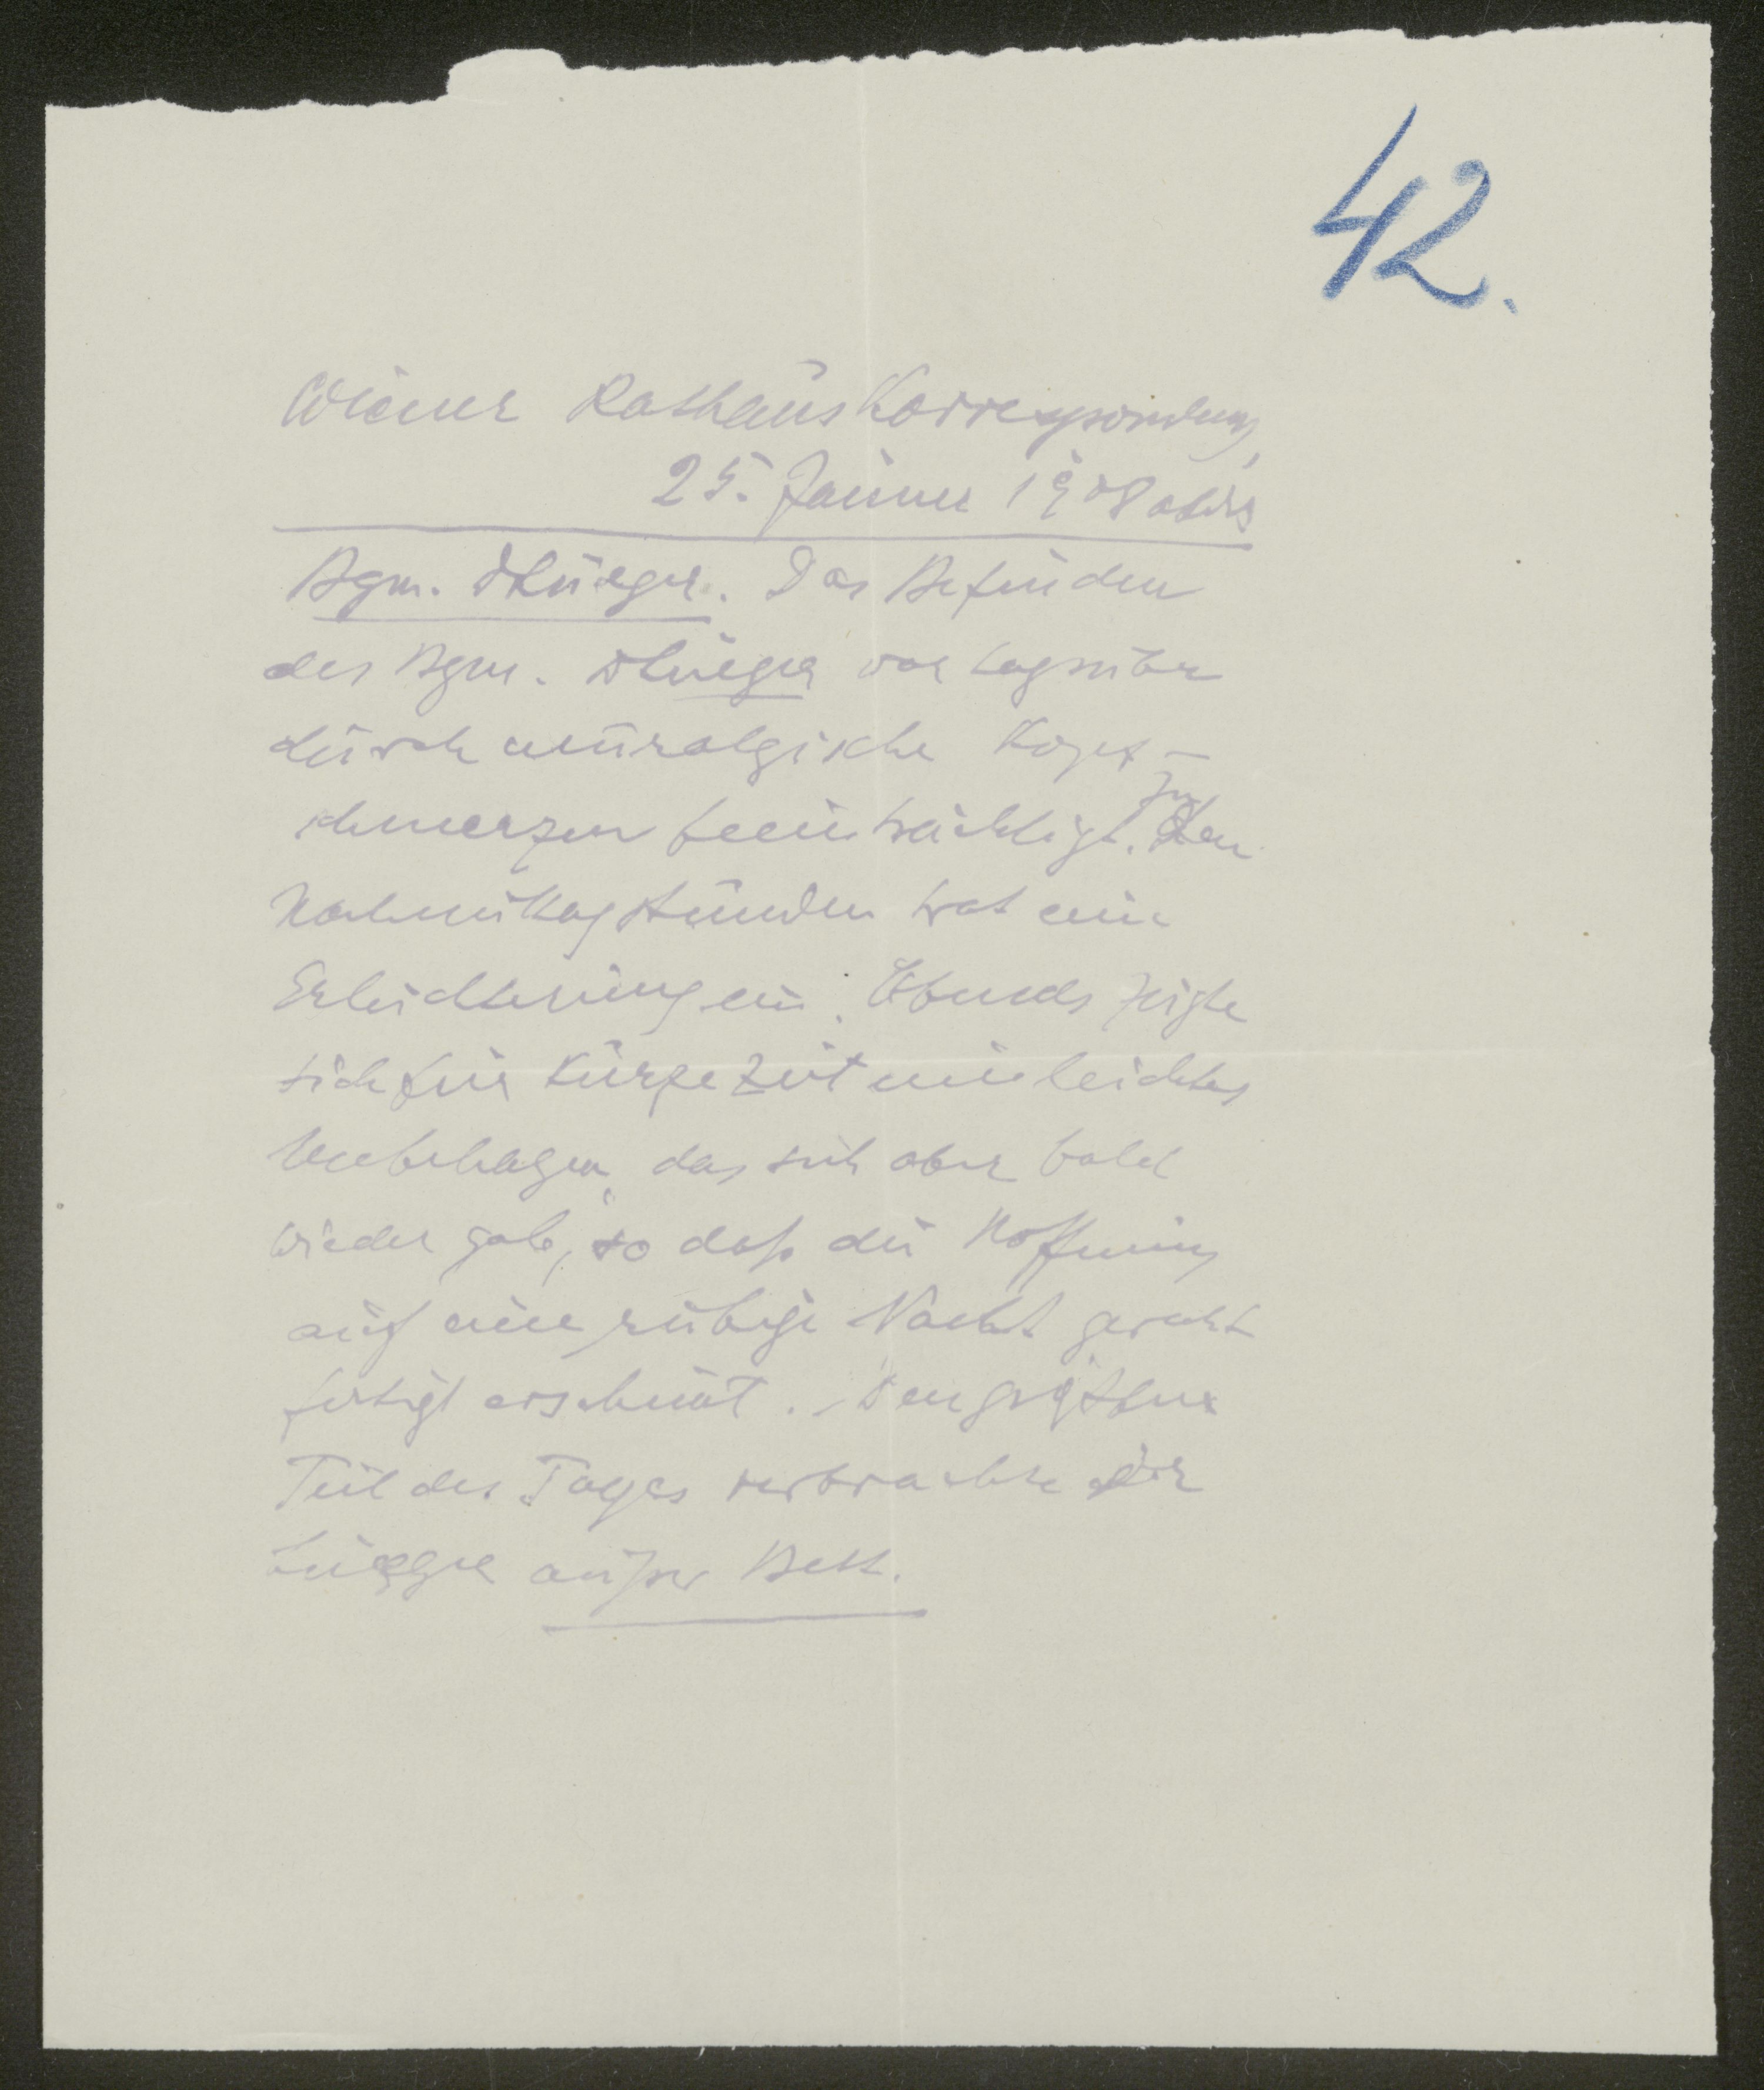 42.
Wiener Rathauskorrespondenz,
25. Jänner 1908 abds
Bgm. Dr Lueger. Das Befinden
des Bgm. Dr Lueger war tagsüber
durch neuralgische Kopf-
schmerzen beeinträchtigt. In den
Nachmittagstunden trat eine
Erleichterung ein. Abends zeigte
sich für kurze Zeit ein leichtes
Unbehagen, das sich aber bald
wieder gab, so daß die Hoffnung
auf eine ruhige Nacht gerecht
fertigt erscheint. Den größten
Teil des Tages verbrachte Dr
Lueger außer Bett.